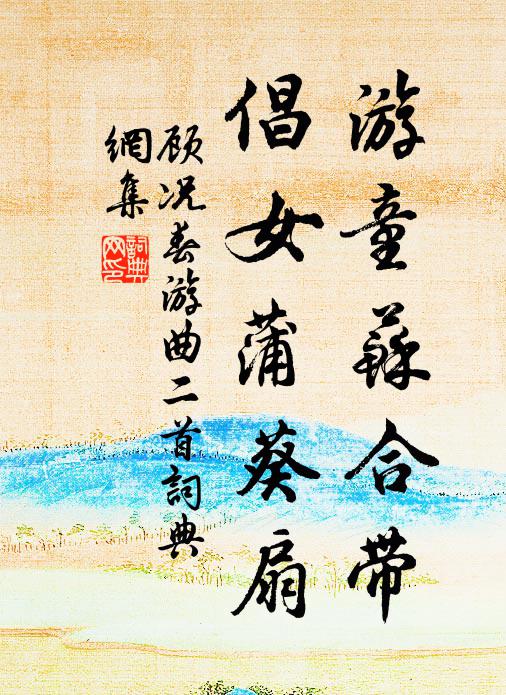 游童蘇合带
倡女蒲葵扇
顾况春游曲二首詞典
網集
詞典
网印